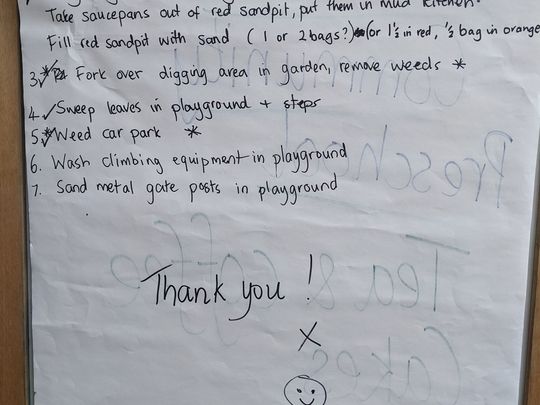 Take saucepans out of red sandpit, put them in mud kitchen.
Fill red sandpit with sand (1 or 2 bags?) (or 1½ in red, ½ bag in orange
3. Fork over digging area in garden, remove weeds *
4. ✓ Sweep leaves in playground + steps
5. Weed car park *
6. Wash climbing equipment in playground
7. Sand metal gate posts in playground
Thank you !
X
Preschool
Tea & Coffee
Cakes